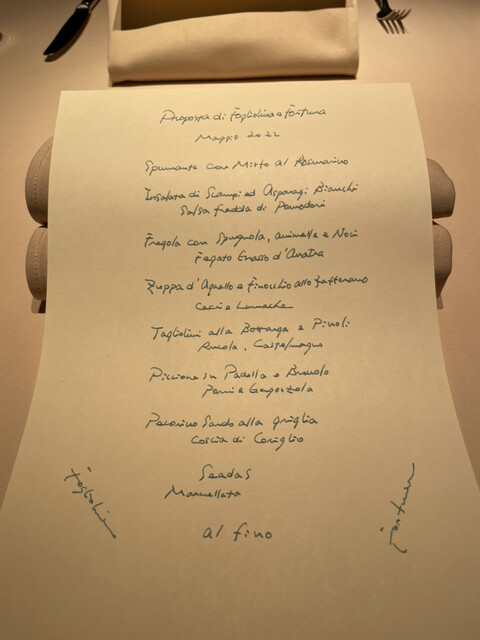 Proposta di Fogliolina e Fortuna
Maggio 2022
Spumante con Mirto al Rosmarino
Insalata di Scampi ed Asparagi Bianchi
Salsa fredda di Pomodori
Fregola con Spugnola, animelle e Noci
Fegato Grasso d'Anatra
Zuppa d'Agnello e Finocchio allo Zafferano
Ceci e Lumache
Tagliolini alla Bottarga e Pinoli
Rucola, Castelmagno
Piccione in Padella e Brunolo
Porri e
Pecorino Sardo alla griglia
Coscia di Coniglio
Seadas
Marmellata
al fino